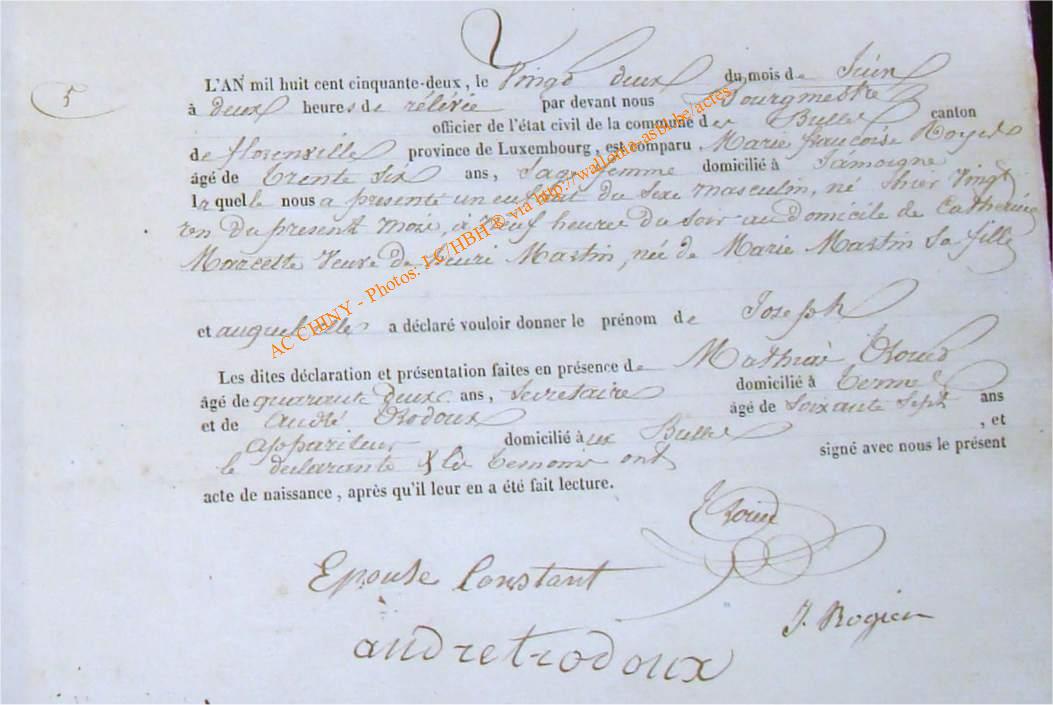 5
L'AN mil huit cent cinquante-deux, le Vingt deux du mois de Juin
à deux heures de rélévée par devant nous Bourgmestre
officier de l'état civil de la commune des Bulles canton
de florenville province de Luxembourg, est comparu Marie françoise Royer
âgé de trente six ans, Sage femme domicilié à Jamoigne
laquelle nous a présenté un enfant du Sexe masculin, né hier Vingt
un du présent mois, à Neuf heures du Soir au domicile de Catherine
Marcette Veuve de henri Martin, née de Marie Martin Sa fille
et auquel elle a déclaré vouloir donner le prénom de Joseph
Les dites déclaration et présentation faites en présence de Mathieu
âgé de quarante deux ans, Secrétaire domicilié à termes
et de André trodoux âgé de Soixante Sept ans
appariteur domicilié aux Bulles , et
la déclarante & les temoins ont signé avec nous le présent
acte de naissance, après qu'il leur en a été fait lecture.
Epouse Constant
J. Rogier
andre trodoux
AC CHINY - Photos: LC/HBH ® via http://wallonia-asbl.be/actes